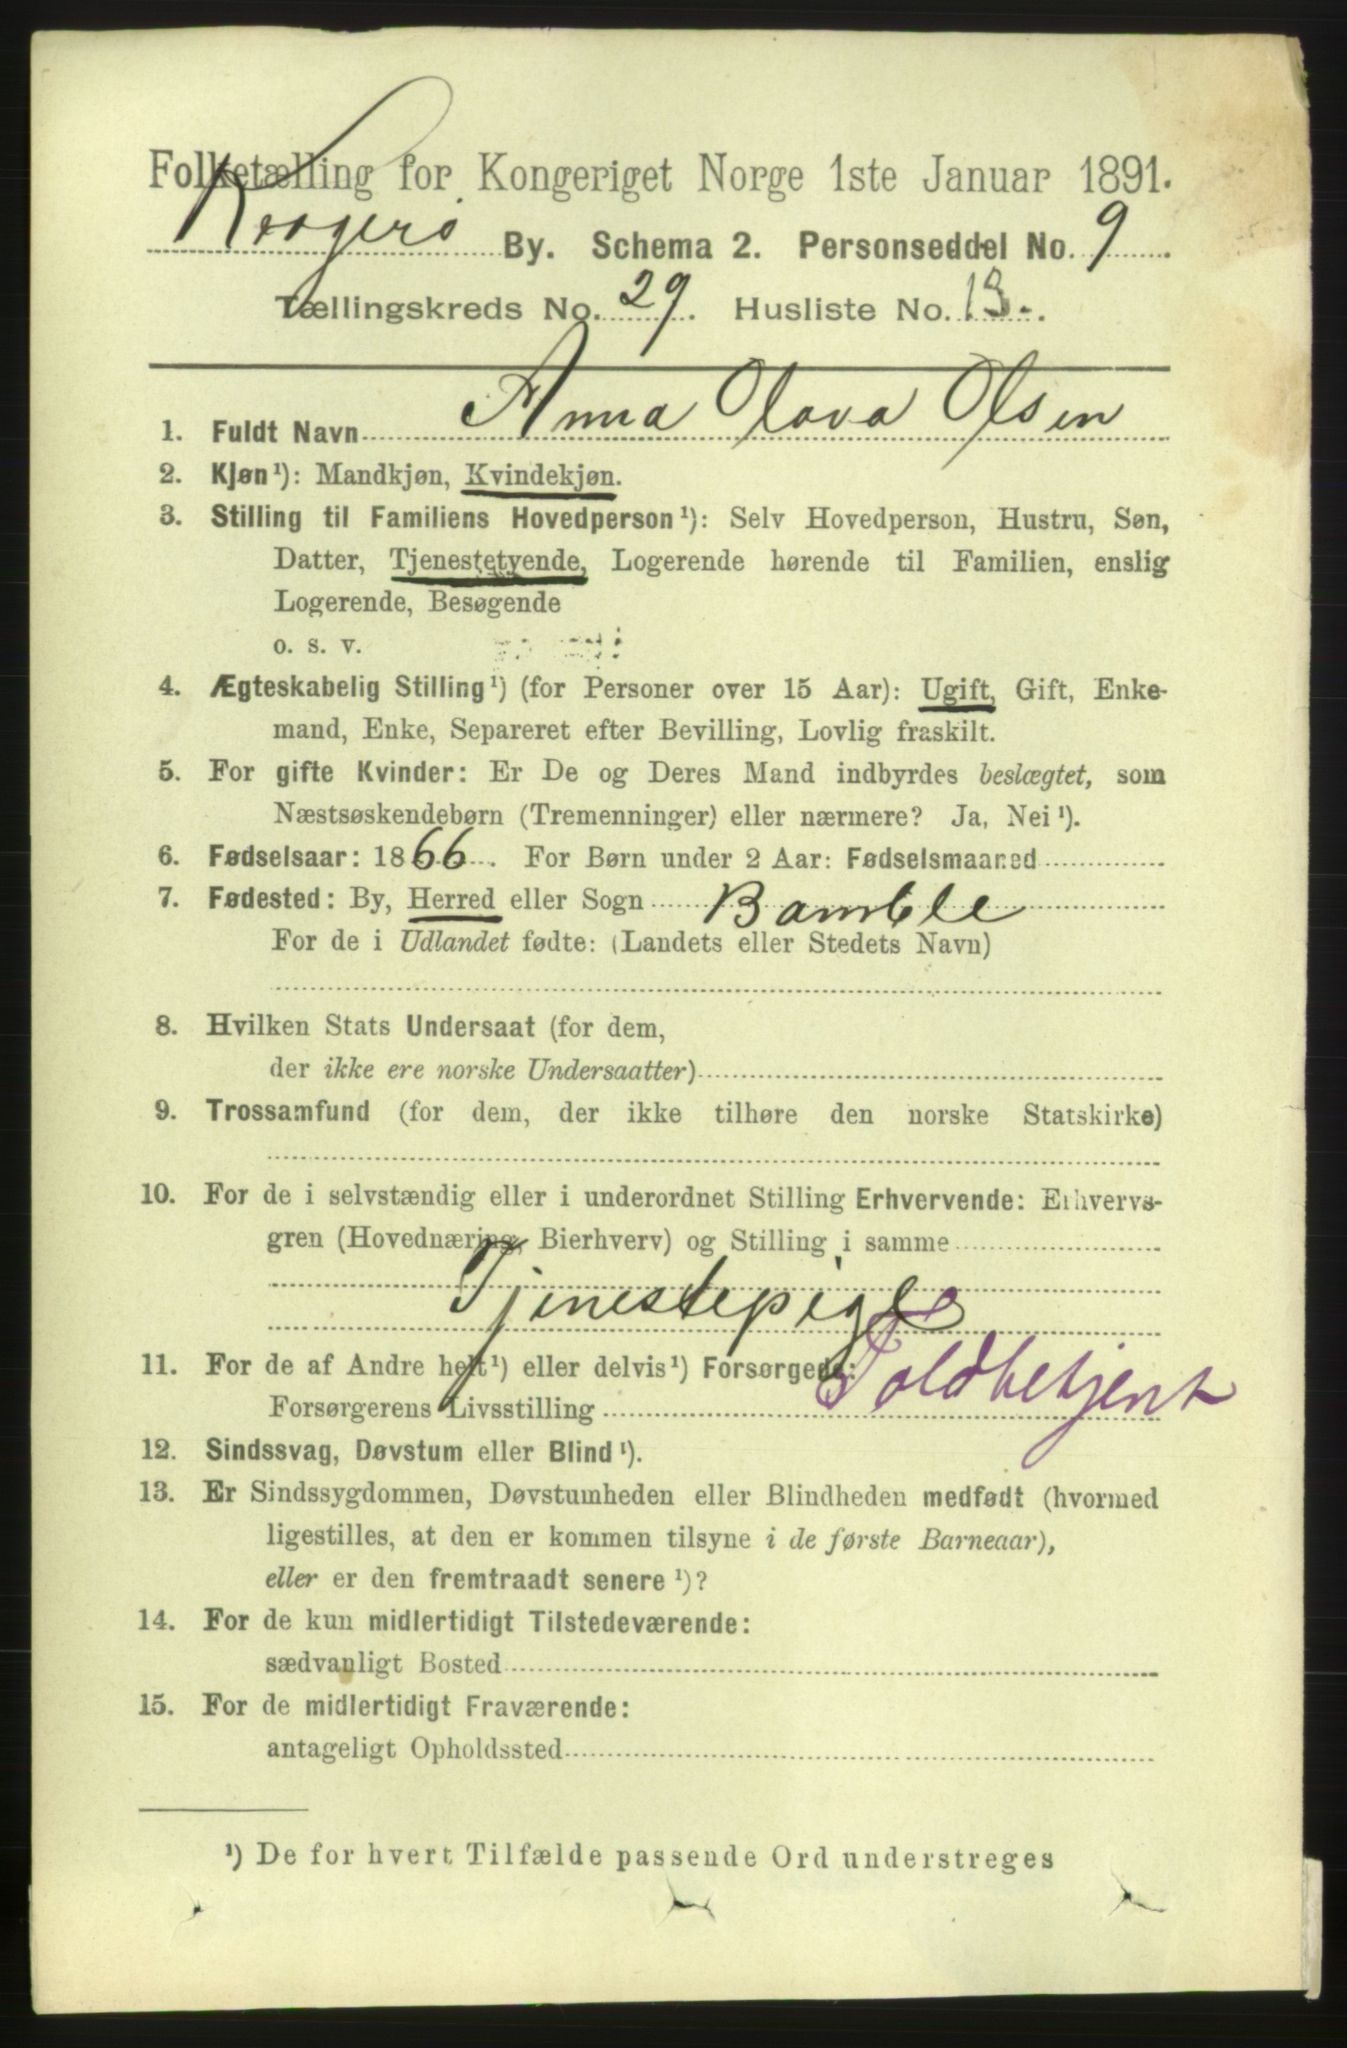 Folketælling for Kongeriget Norge 1ste Januar 1891.
Kragerø By. Schema 2. Personseddel No. 9.
Tællingskreds No. 29. Husliste No. 13.
1. Fuldt Navn Anna Olava Olsen
2. Kjøn¹): Mandkjøn, Kvindekjøn.
3. Stilling til Familiens Hovedperson¹): Selv Hovedperson, Hustru, Søn,
Datter, Tjenestetyende, Logerende hørende til Familien, enslig
Logerende, Besøgende
o. s. v.
4. Ægteskabelig Stilling¹) (for Personer over 15 Aar): Ugift, Gift, Enke-
mand, Enke, Separeret efter Bevilling, Lovlig fraskilt.
5. For gifte Kvinder: Er De og Deres Mand indbyrdes beslægtet, som
Næstsøskendebørn (Tremenninger) eller nærmere? Ja, Nei¹).
6. Fødselsaar: 1866. For Børn under 2 Aar: Fødselsmaaned
7. Fødested: By, Herred eller Sogn Bamble
For de i Udlandet fødte: (Landets eller Stedets Navn)
8. Hvilken Stats Undersaat (for dem,
der ikke ere norske Undersaatter)
9. Trossamfund (for dem, der ikke tilhøre den norske Statskirke)
10. For de i selvstændig eller i underordnet Stilling Erhvervende: Erhvervs-
gren (Hovednæring, Bierhverv) og Stilling i samme
Tjenestepige
11. For de af Andre helt¹) eller delvis¹) Forsørgede: Toldbetjent
Forsørgerens Livsstilling
12. Sindssvag, Døvstum eller Blind¹).
13. Er Sindssygdommen, Døvstumheden eller Blindheden medfødt (hvormed
ligestilles, at den er kommen tilsyne i de første Barneaar),
eller er den fremtraadt senere¹)?
14. For de kun midlertidigt Tilstedeværende:
sædvanligt Bosted
15. For de midlertidigt Fraværende:
antageligt Opholdssted
¹) De for hvert Tilfælde passende Ord understreges